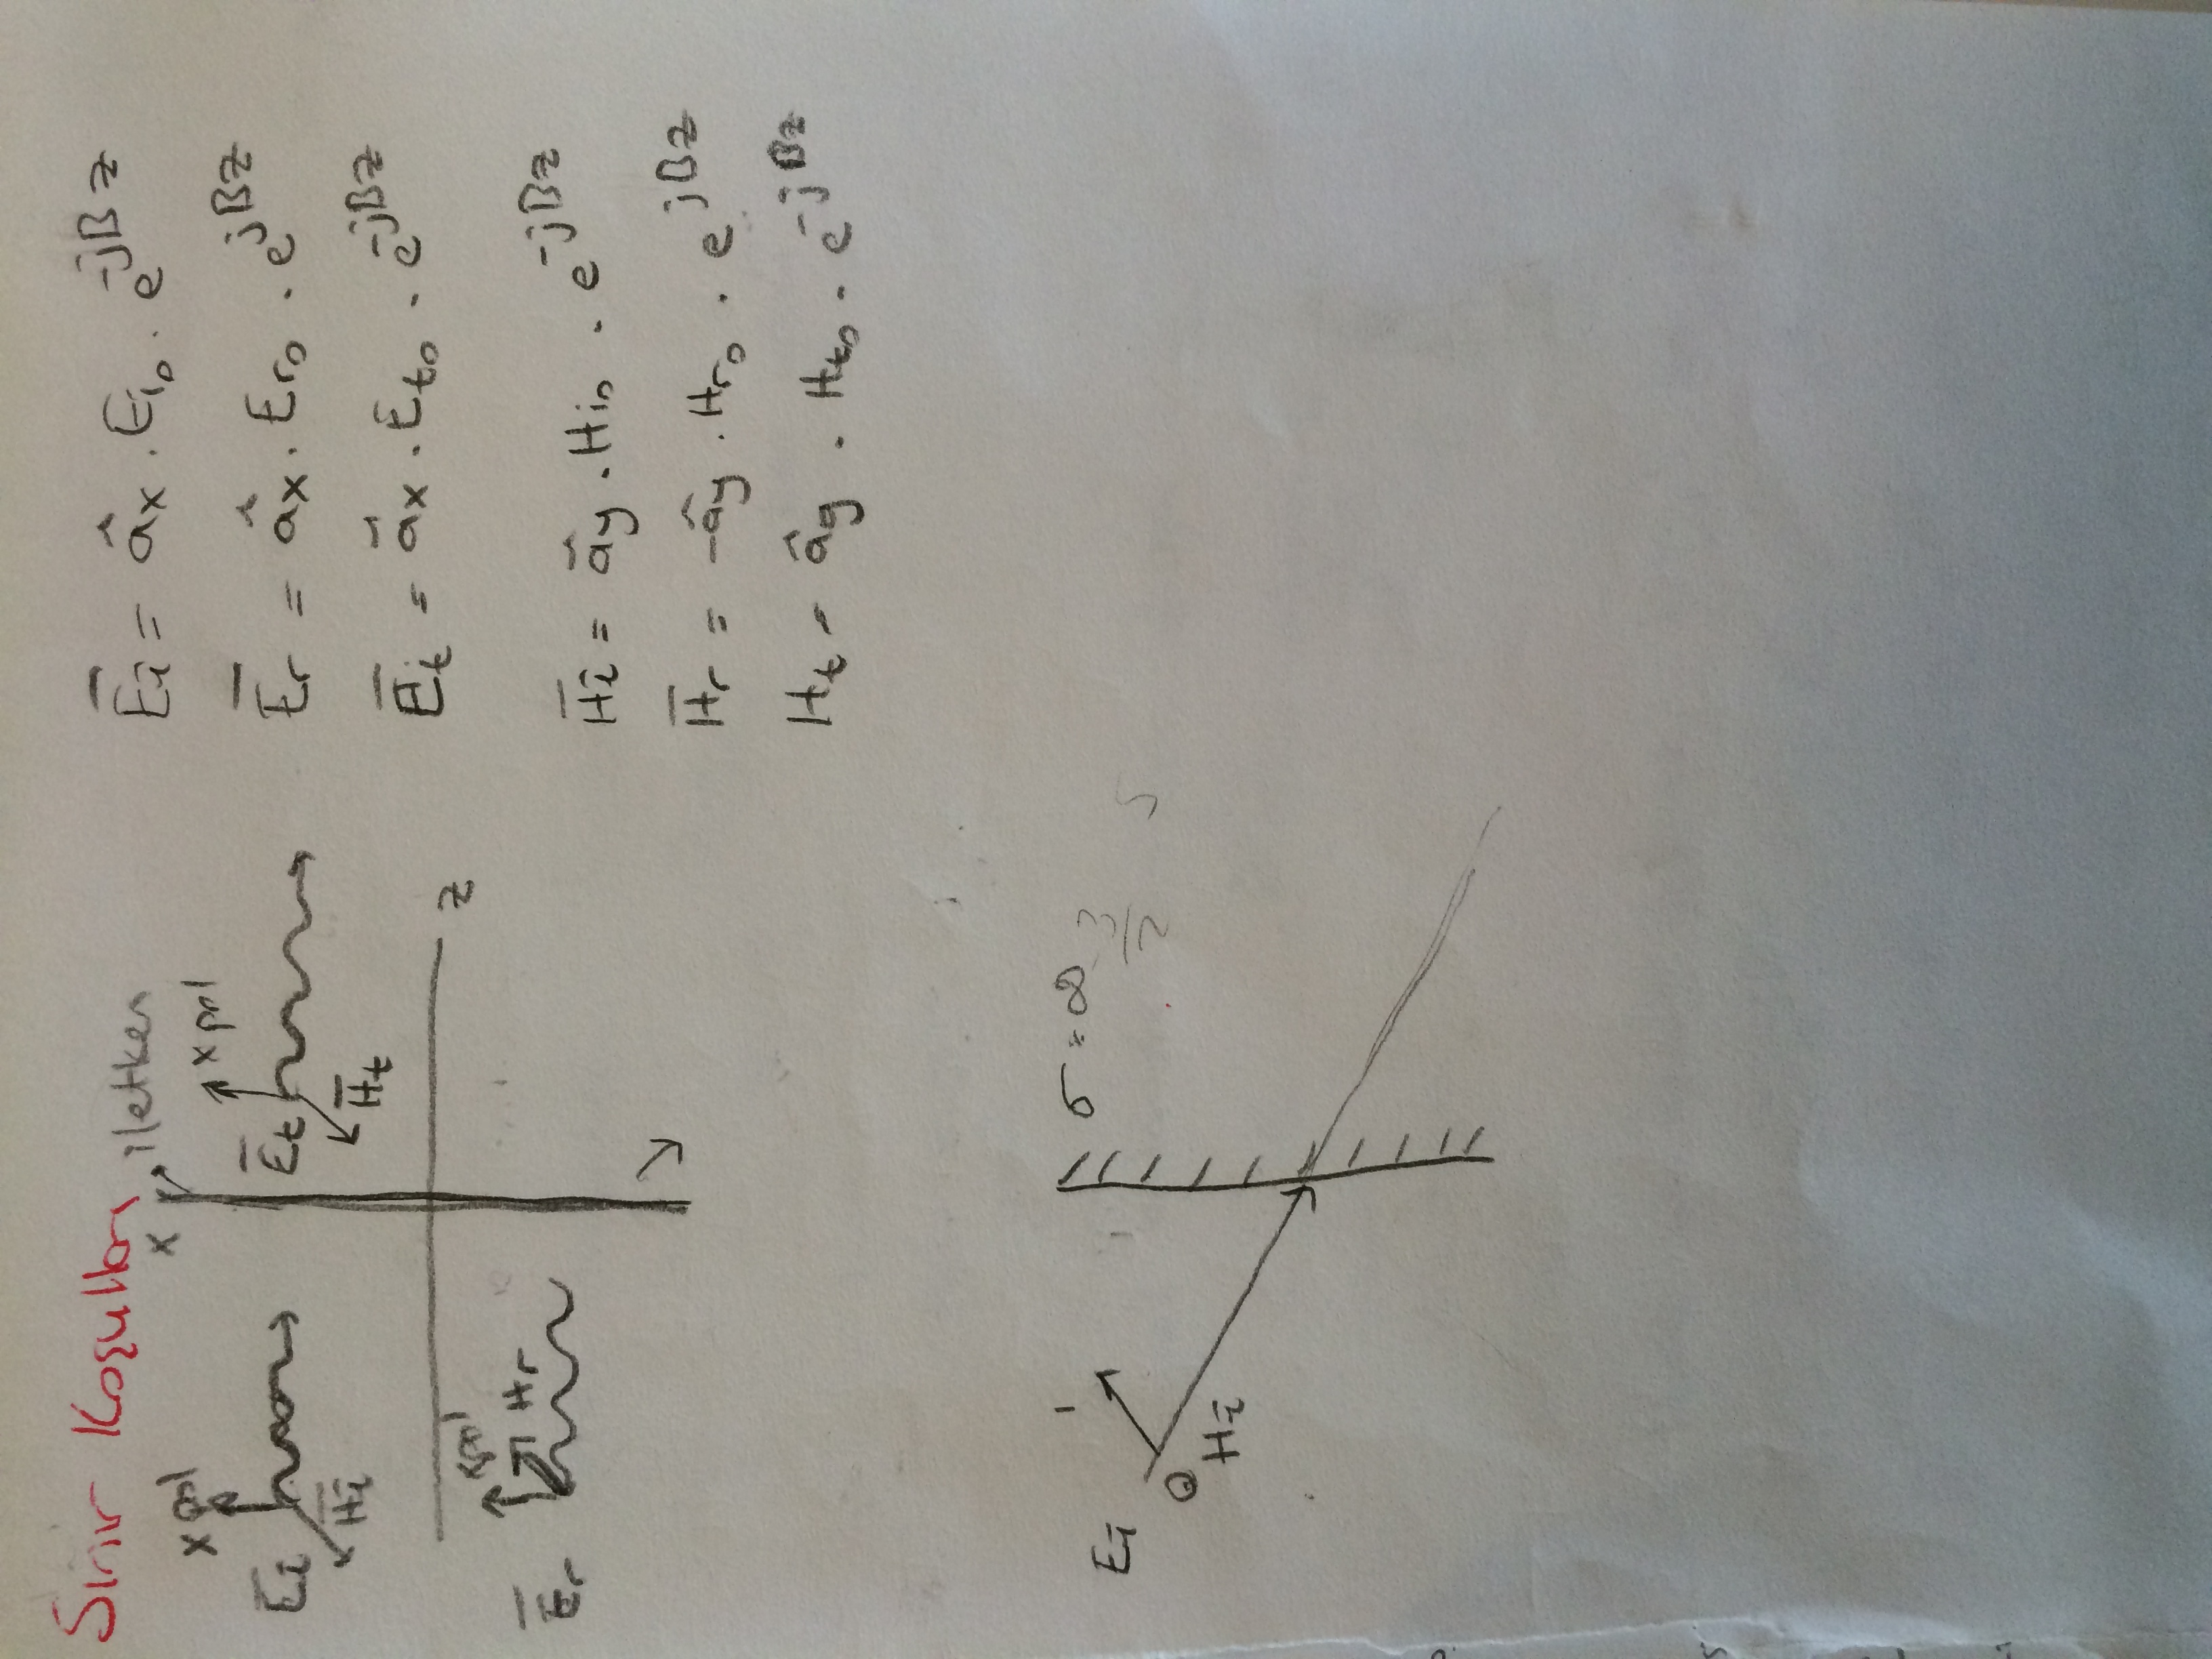 Sınır Koşulları
x iletken
x pol
x pol
Ēi
H̄i
Ēt
H̄t
z
xpol
Ēr
Hr
Ēi = âx . Ei₀ . e^-jBz
Ēr = âx . Er₀ . e^jBz
Ēt = âx . Et₀ . e^-jBz
H̄i = ây . Hi₀ . e^-jBz
H̄r = -ây . Hr₀ . e^jBz
Ht = ây . Ht₀ . e^-jBz
Ei
Hi
σ = ∞